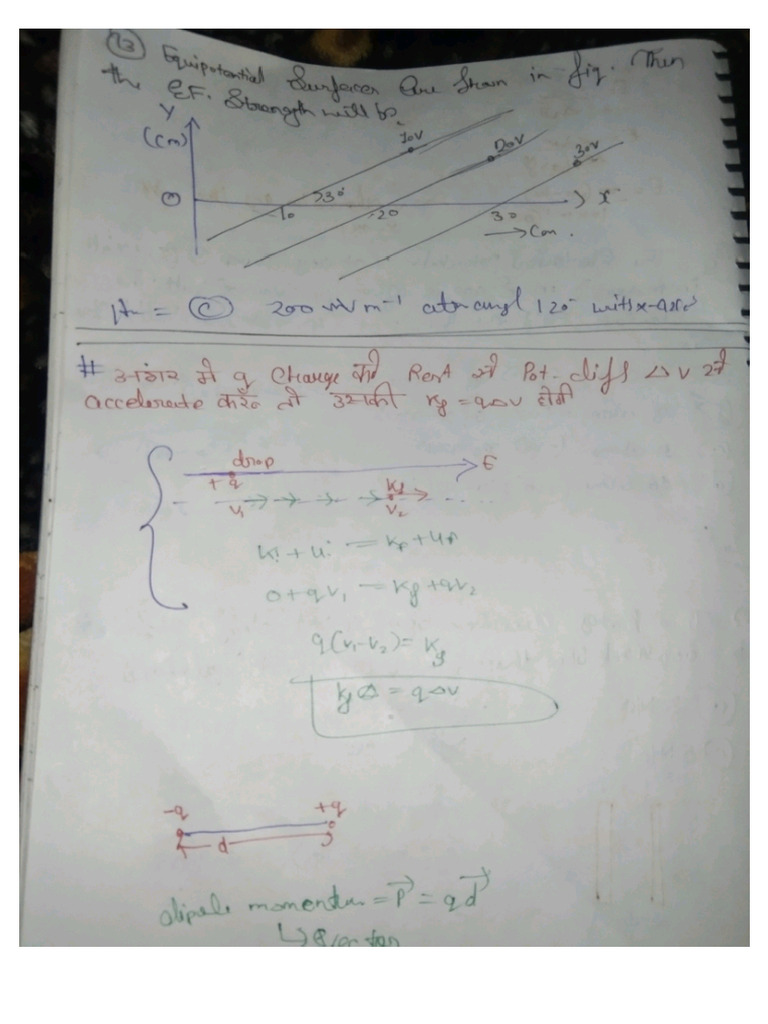 23 Equipotential Surfaces are shown in fig. Then
the E.F. Strength will be.
Y
(cm)
10V
20V
30V
O
30°
10
20
30
x
→ Cm.
= (C) 200 V m⁻¹ at an angl 120° with x-axis
# अगर में q Charge को Rest से Pot. diff ΔV से
accelerate करूँ तो उसकी Kf = qΔV होगी
drop
E
+q
Kf
V₁
V₂
Ki + Ui = Kf + Uf
0 + qV₁ = Kf + qV₂
q(V₁-V₂) = Kf
Kf = qΔV
-q
+q
d
dipole momentum = P = qd